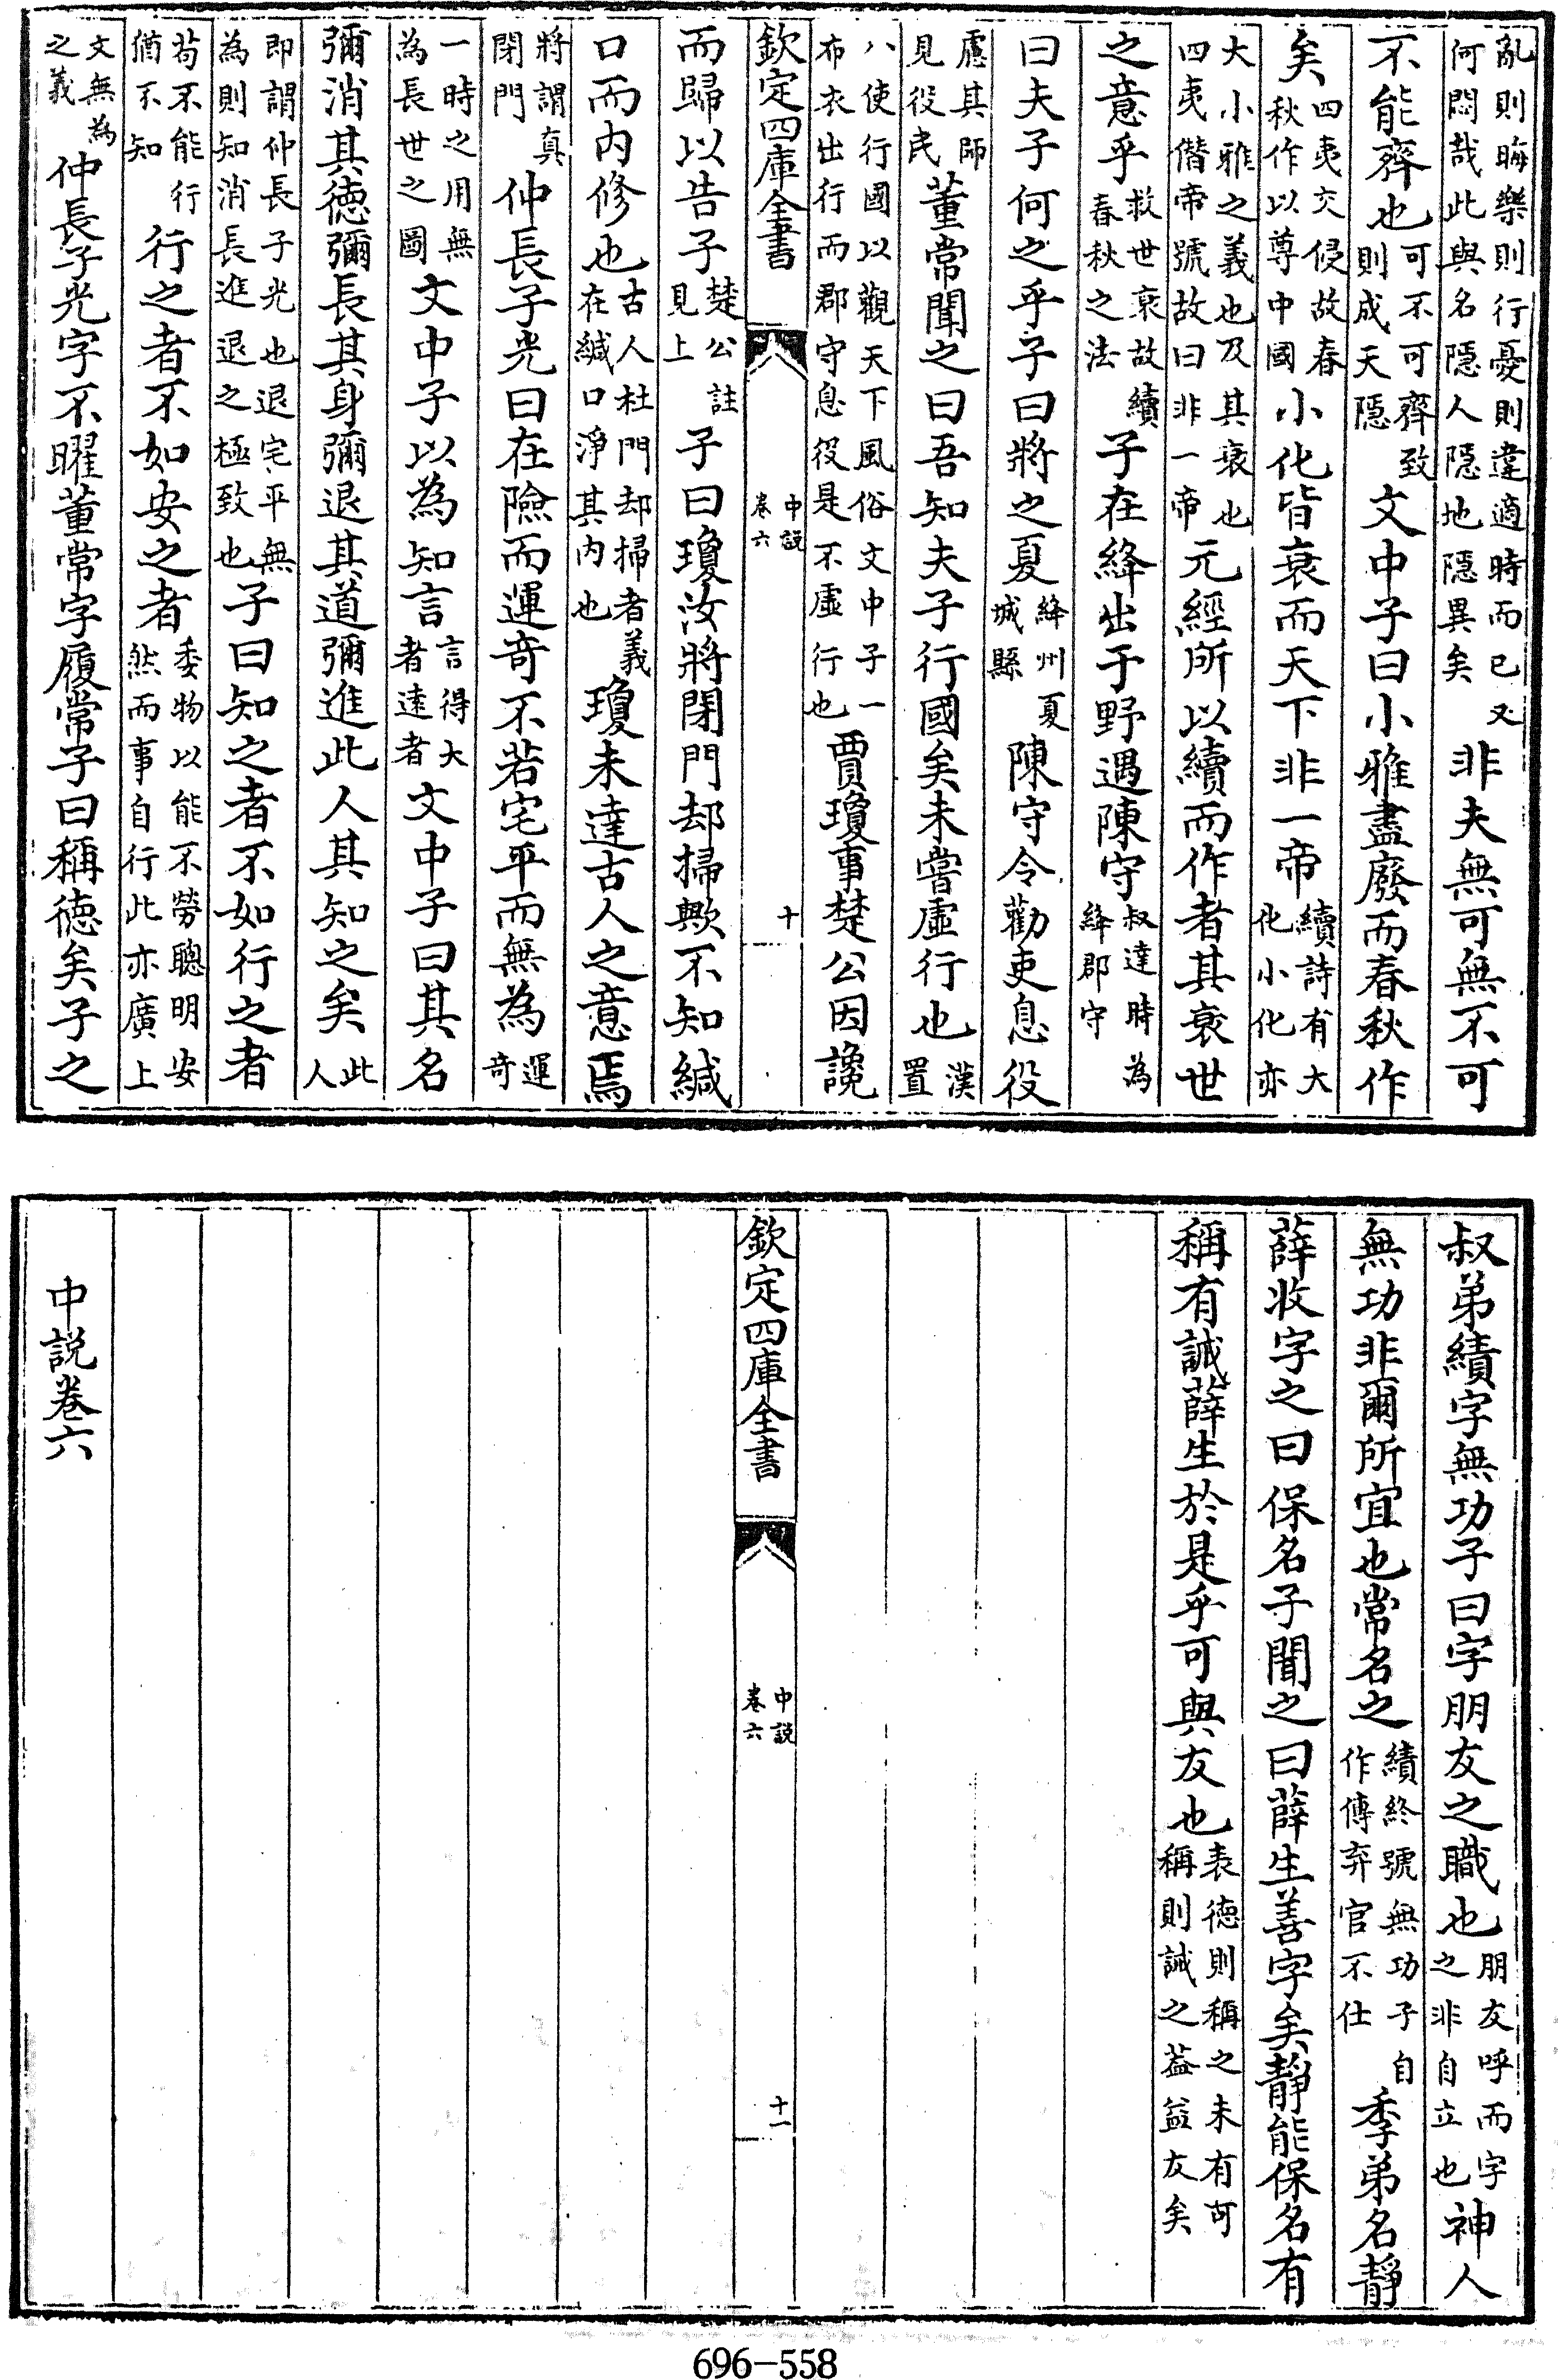 亂則晦樂則行憂則違適時而已又何悶哉此與名隱人隱地隱異矣非夫無可無不可
不能齊也可不可齊致則成天隱文中子曰小雅盡廢而春秋作
矣四夷交侵故春秋作以尊中國小化皆衰而天下非一帝續詩有大化小化亦
大小雅之義也及其衰也四夷偕帝號故曰非一帝元經所以續而作者其衰世
之意乎救世衰故續春秋之法子在絳出于野遇陳守叔達時為絳郡守
曰夫子何之乎子曰將之夏絳州夏城縣陳守令勸吏息役
慮其師見役民董常聞之曰吾知夫子行國矣未嘗虛行也漢置
八使行國以觀天下風俗文中子一布衣出行而郡守息役是不虛行也賈瓊事楚公因讒
欽定四庫全書 中說卷六 十
而歸以告子楚公註見上子曰瓊汝將閉門却掃歟不知緘
口而內修也古人杜門却掃者義在緘口淨其內也瓊未達古人之意焉
將謂真閉門仲長子光曰在險而運奇不若宅平而無為運奇
一時之用無為長世之圖文中子以為知言言得大者遠者文中子曰其名
彌消其德彌長其身彌退其道彌進此人其知之矣此人
即謂仲長子光也退宅平無為則知消長進退之極致也子曰知之者不如行之者
苟不能行猶不知行之者不如安之者委物以能不勞聰明安然而事自行此亦廣上
文無為之義仲長子光字不曜董常字履常子曰稱德矣子之
叔弟績字無功子曰字朋友之職也朋友呼而字之非自立也神人
無功非爾所宜也常名之績終號無功子自作傳弃官不仕季弟名靜
薛收字之曰保名子聞之曰薛生善字矣靜能保名有
稱有誡薛生於是乎可與友也表德則稱之未有可稱則誡之葢益友矣
欽定四庫全書 中說卷六 十一
中說卷六
696-558